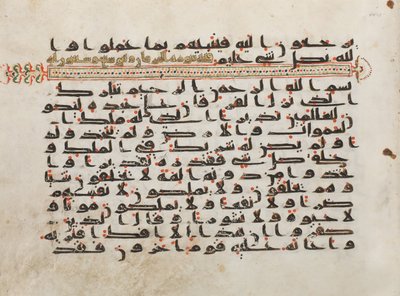 يرجعون اليه فينبئهم بما عملوا و ا
لله بكل شي عليم
بسم الله الرحمن الرحيم تبرك
الذي نزل الفرقان على عبده ليكو
ن للعلمين نذيرا الذي له ملك ا
لسموات و الارض و لم يتخذ و
لدا و لم يكن له شريك في الملك و
خلق كل شي فقدره تقديرا و ا
تخذوا من دونه الهه لا يخلقون شيا
و هم يخلقون و لا يملكون لانفسهم
ضرا و لا نفعا و لا يملكون موتا و
لا حيوه و لا نشورا و قال الذين
كفروا ان هذا الا افك افتريه
و اعانه عليه قوم اخرون فقد